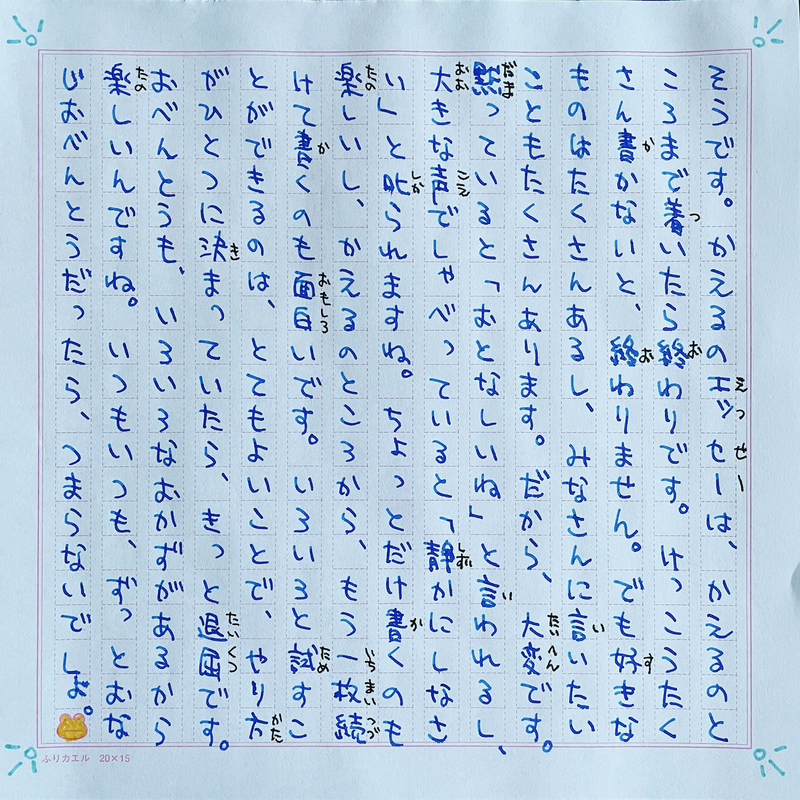 そうです。かえるのエッセーは、かえるのと
ころまで着いたら終わりです。けっこうたく
さん書かないと、終わりません。でも好きな
ものはたくさんあるし、みなさんに言いたい
こともたくさんあります。だから、大変です。
黙っていると「おとなしいね」と言われるし、
大きな声でしゃべっていると「静かにしなさ
い」と叱られますね。ちょっとだけ書くのも
楽しいし、かえるのところから、もう一枚続
けて書くのも面白いです。いろいろと試すこ
とができるのは、とてもよいことで、やり方
がひとつに決まっていたら、きっと退屈です。
おべんとうも、いろいろなおかずがあるから
楽しいんですね。いつもいつも、ずっとおな
じおべんとうだったら、つまらないでしょ。
ふりカエル 20×15